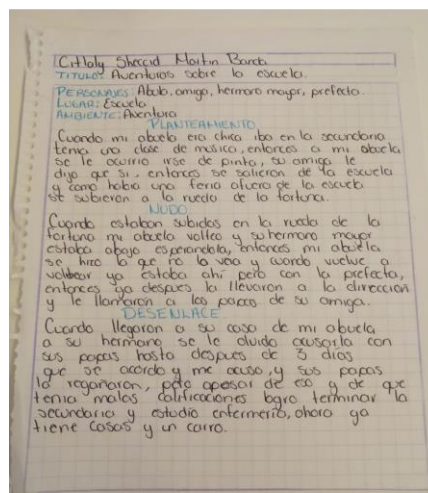 Citlaly Sherad Martin Banda
TITULO: Aventuras sobre la escuela.
PERSONAJES: Abula, amiga, hermano mayor, prefecta.
LUGAR: Escuela
AMBIENTE: Aventura
PLANTEAMIENTO
Cuando mi abuela era chica iba en la secundaria
tenia una clase de musica, entonces a mi abuela
se le ocurrio irse de pinta, su amiga le
dijo que si, entonces se salieron de la escuela
y como habia una feria afuera de la escuela
se subieron a la rueda de la fortuna.
NUDO
Cuando estaban subidas en la rueda de la
fortuna mi abuela volteo y su hermano mayor
estaba abajo esperandola, entonces mi abuela
se hizo la que no la veia y cuando vuelve a
voltear ya estaba ahi pero con la prefecta,
entonces ya despues la llevaron a la direccion
y le llamaron a los papas de su amiga.
DESENLACE
Cuando llegaron a su casa de mi abuela
a su hermano se le olvido acusarla con
sus papas hasta despues de 3 dias
que se acordo y me acuso, y sus papas
la regañaron, pero apesar de eso y de que
tenia malas calificaciones logro terminar la
secundaria y estudio enfermeria, ahora ya
tiene casas y un carro.